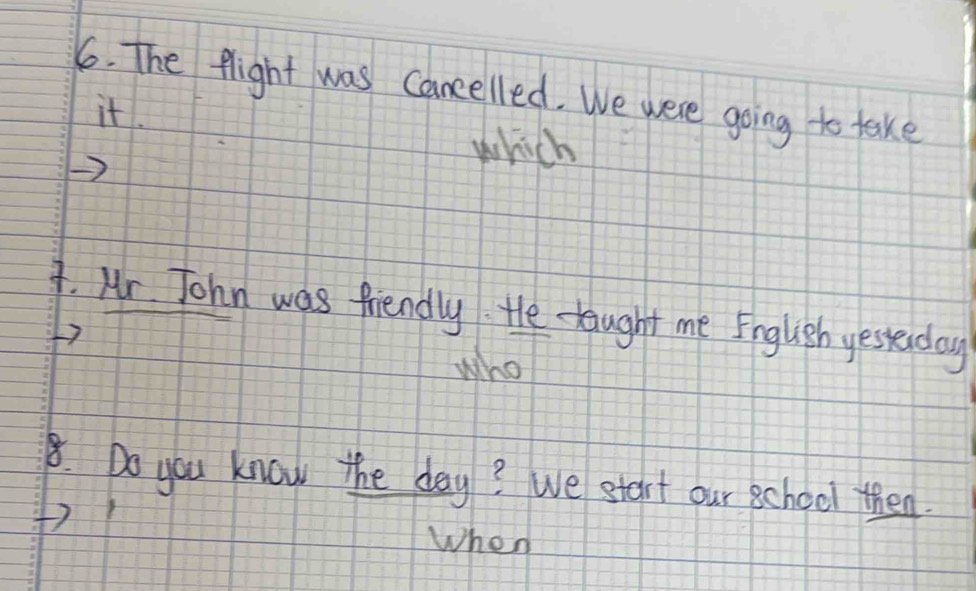 6. The flight was cancelled. We were going to take
it.
which
→
7. Mr. John was friendly. He taught me English yesterday
→
who
8. Do you know the day? We start our school then.
→
When